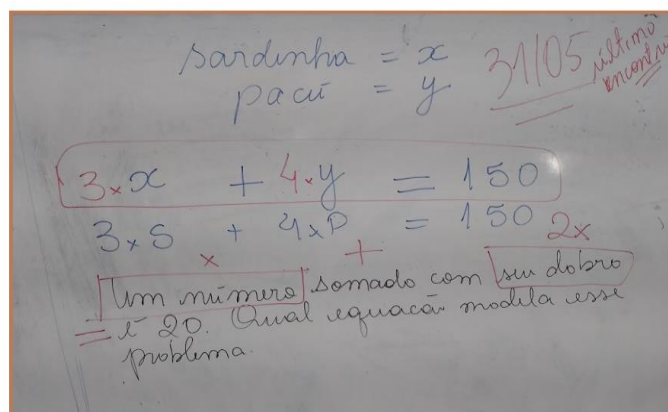 sardinha = x
pacú = y
31/05 último
encontro
3×x + 4×y = 150
3×S + 4×P = 150
x + 2x
Um número somado com seu dobro
= é 20. Qual equacão modela esse
problema.